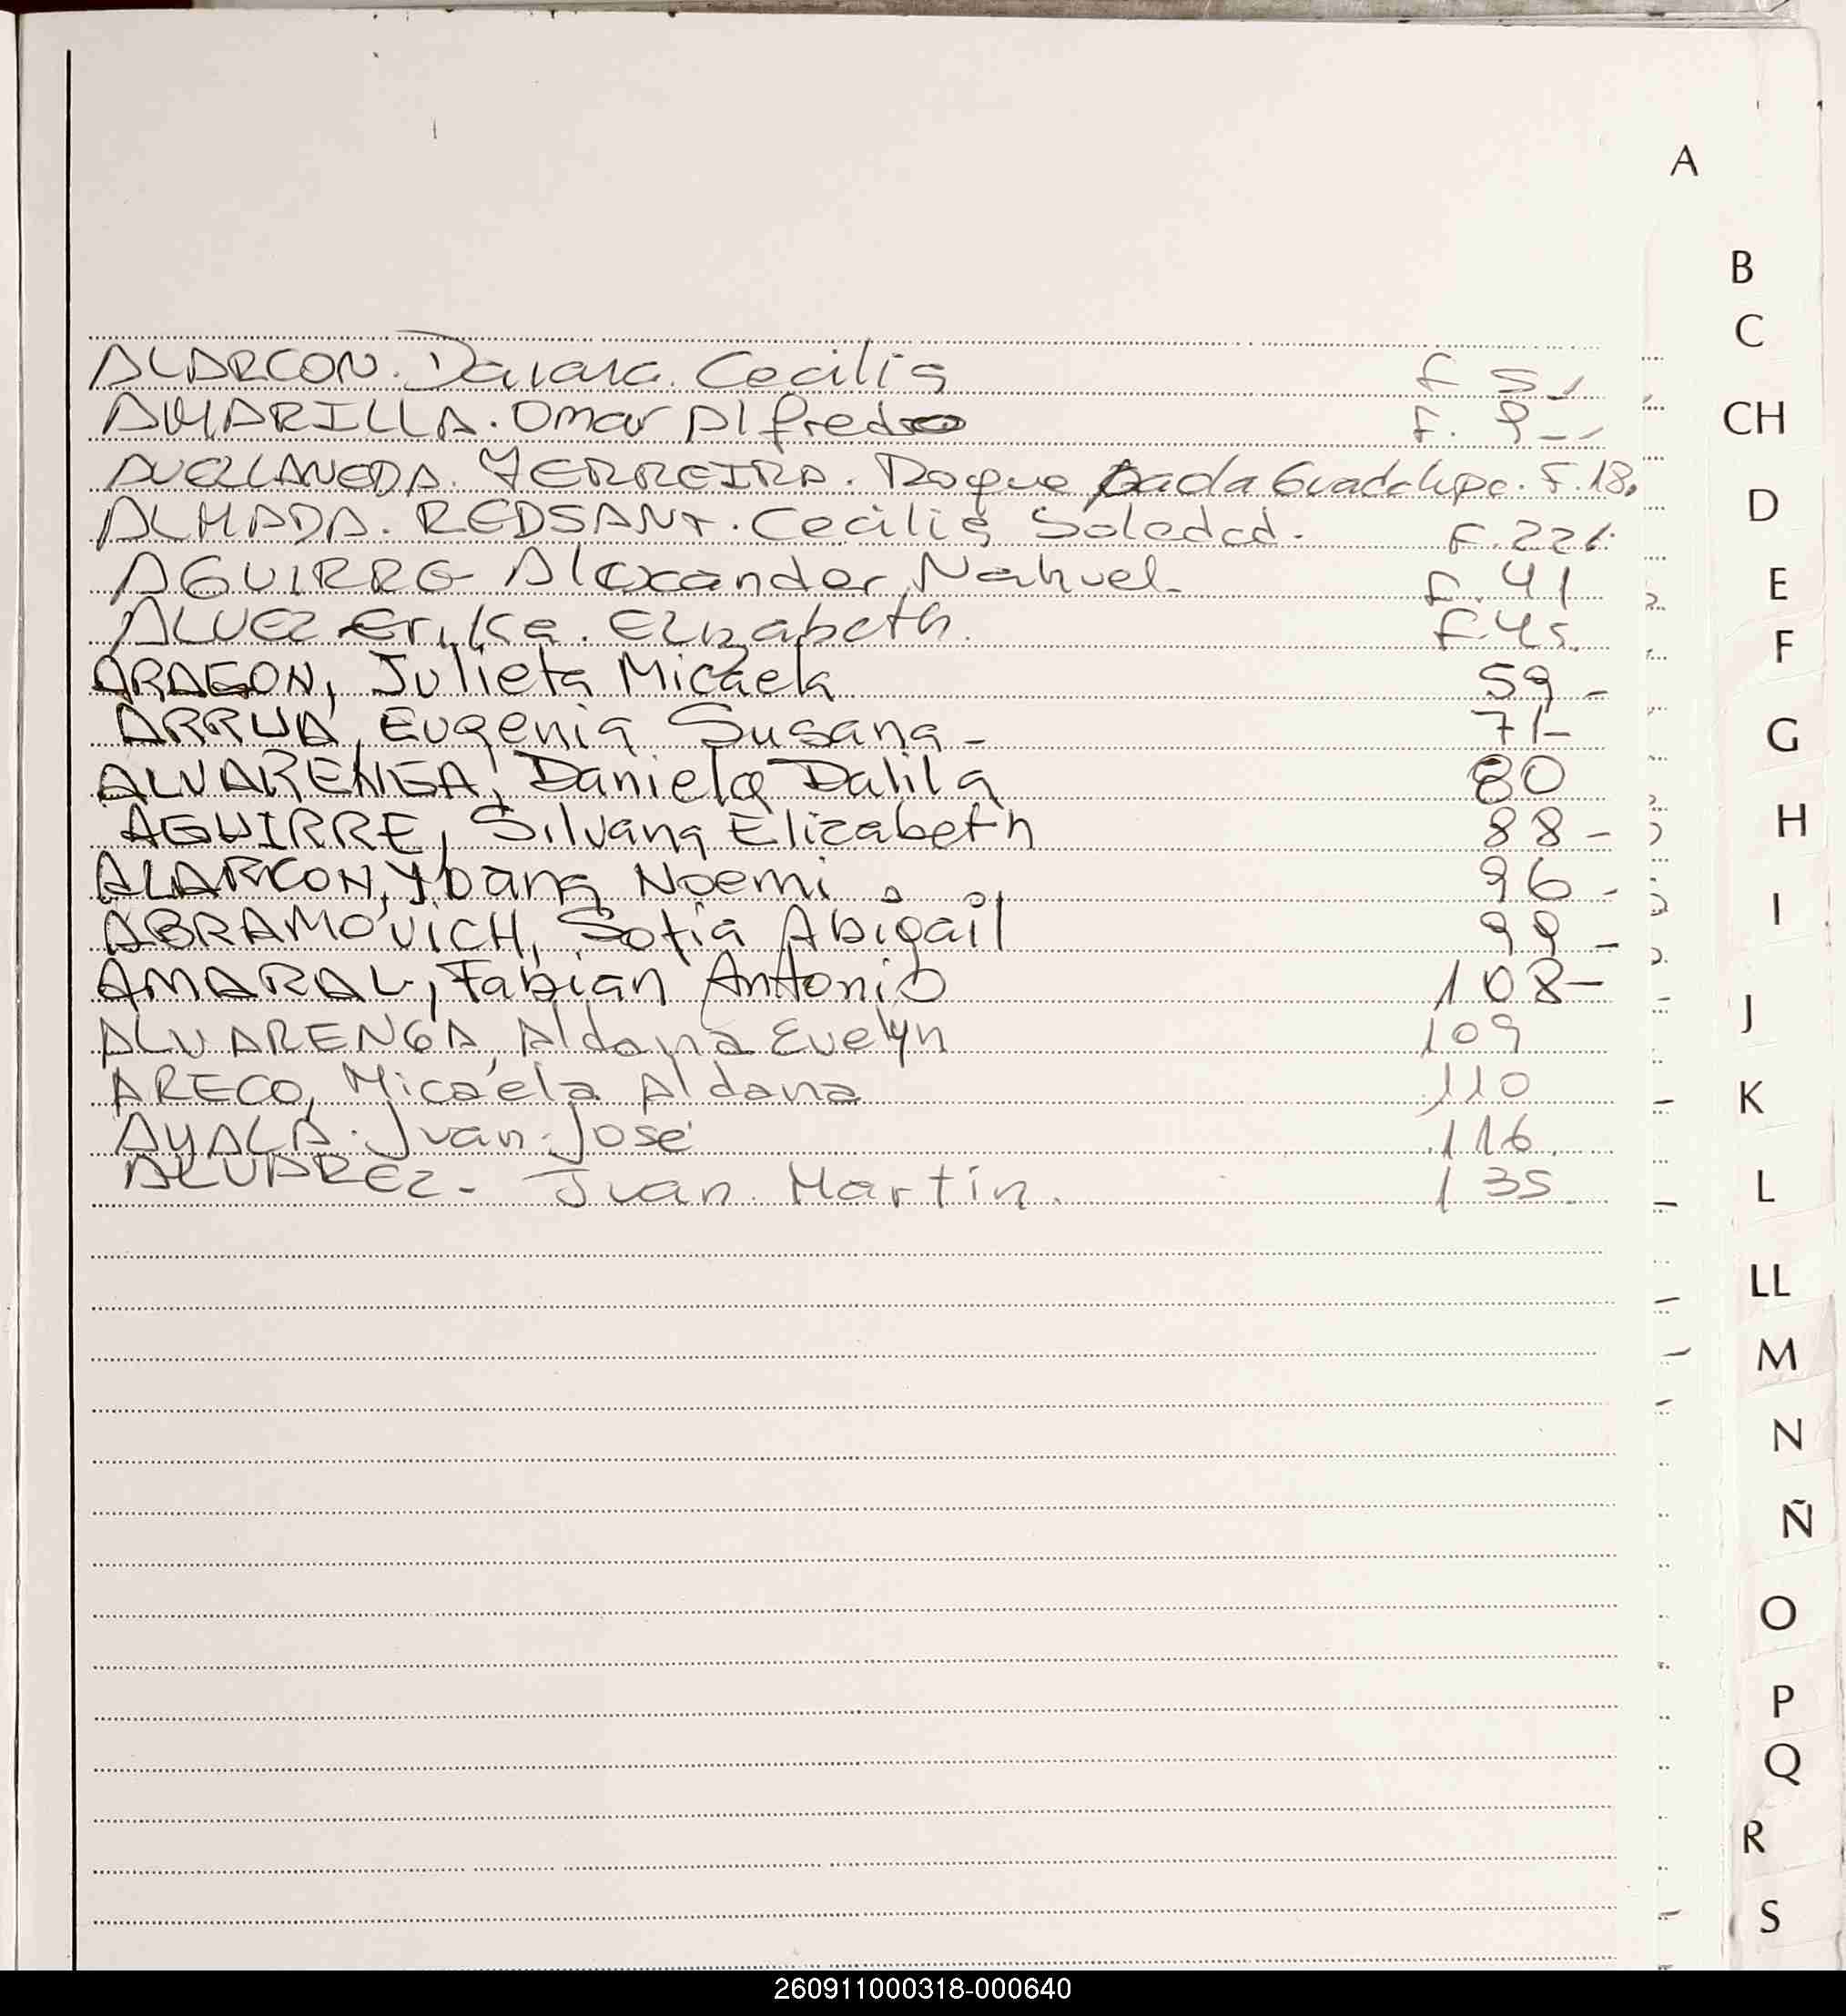 A
ALARCON. Daiana. Cecilia f 5-
AMARILLA. Omar Alfredo F. 9--
AVELLANEDA. FERREIRA. Roque Guadalupe. F.18.
ALMADA. REDSANT. Cecilia Soledad. F.22
AGUIRRE Alexander Nahuel- F.41
ALVEZ Erika. Elizabeth. F45.
ARAGON, Julieta Micaela 59-
ARRUA, Eugenia Susana- 71-
ALVARENGA, Daniela Dalila 80
AGUIRRE, Silvana Elizabeth 88-
ALARCON, Yoana Noemi 96-
ABRAMOVICH, Sofia Abigail 99-
AMARAL, Fabian Antonio 108-
ALVARENGA, Aldana Evelyn 109
ARECO, Micaela Aldana 110
AYALA. Juan. José 116.
ALVAREZ- Juan. Martín. 135.
B
C
CH
D
E
F
G
H
I
J
K
L
LL
M
N
Ñ
O
P
Q
R
S
260911000318-000640